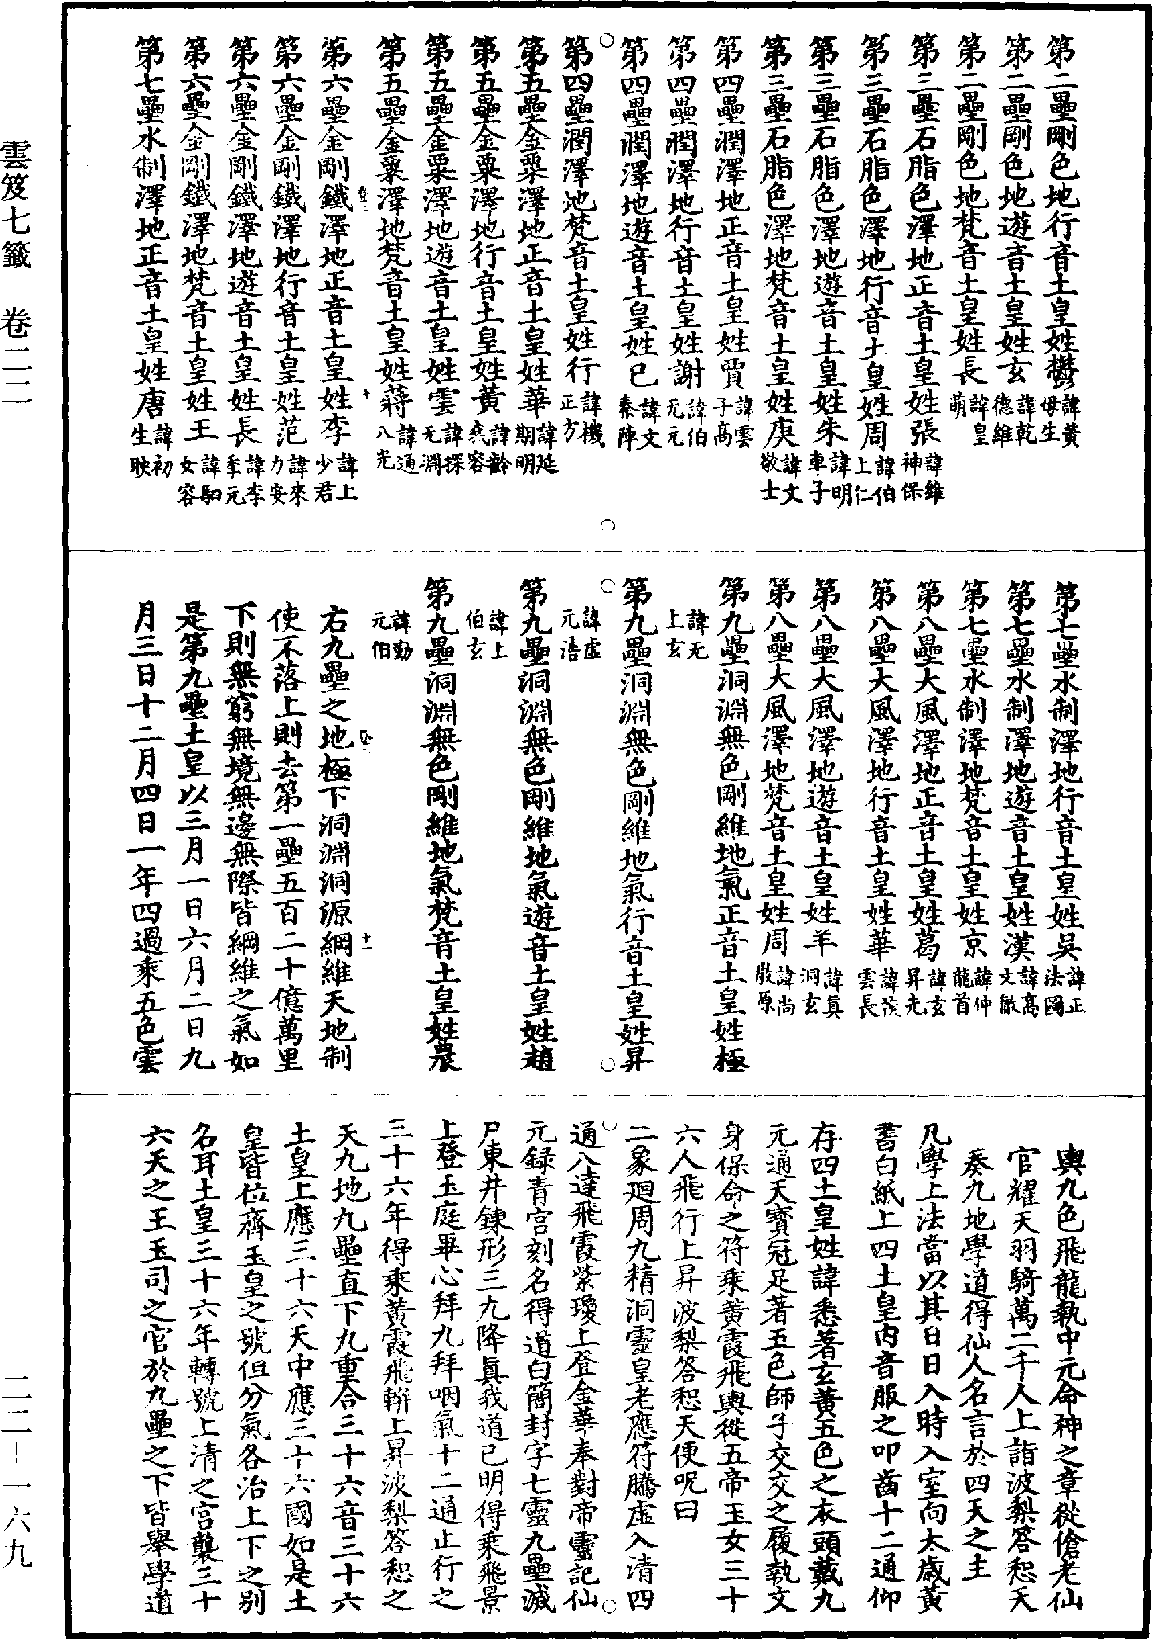 雲笈七籤　卷二二
二二－一六九
第二壘剛色地行音土皇姓欝諱黃母生
第二壘剛色地遊音土皇姓玄諱乾德維
第二壘剛色地梵音土皇姓長諱皇萌
第三壘石脂色澤地正音土皇姓張諱維神保
第三壘石脂色澤地行音土皇姓周諱伯上仁
第三壘石脂色澤地遊音土皇姓朱諱明車子
第三壘石脂色澤地梵音土皇姓庚諱文敬士
第四壘潤澤地正音土皇姓賈諱雲子高
第四壘潤澤地行音土皇姓謝諱伯无元
第四壘潤澤地遊音土皇姓已諱文秦陣
第四壘潤澤地梵音土皇姓行諱機正方
第五壘金粟澤地正音土皇姓華諱延期明
第五壘金粟澤地行音土皇姓黃諱齡我容
第五壘金粟澤地遊音土皇姓雲諱探无淵
第五壘金粟澤地梵音土皇姓蔣諱通八光
第六壘金剛鐵澤地正音土皇姓李諱上少君
第六壘金剛鐵澤地行音土皇姓范諱來力安
第六壘金剛鐵澤地遊音土皇姓長諱李季元
第六壘金剛鐵澤地梵音土皇姓王諱駟女容
第七壘水制澤地正音土皇姓唐諱初生映
第七壘水制澤地行音土皇姓吳諱正法圖
第七壘水制澤地遊音土皇姓漢諱高文徹
第七壘水制澤地梵音土皇姓京諱仲龍首
第八壘大風澤地正音土皇姓葛諱玄昇光
第八壘大風澤地行音土皇姓華諱雲長
第八壘大風澤地遊音土皇姓羊諱真洞玄
第八壘大風澤地梵音土皇姓周諱尚敬原
第九壘洞淵無色剛維地氣正音土皇姓極
諱无上玄
第九壘洞淵無色剛維地氣行音土皇姓昇
諱虛元浩
第九壘洞淵無色剛維地氣遊音土皇姓趙
諱上伯玄
第九壘洞淵無色剛維地氣梵音土皇姓農
諱勁元伯
右九壘之地極下洞淵洞源綱維天地制
使不落上則去第一壘五百二十億萬里
下則無窮無境無邊無際皆綱維之氣如
是第九壘土皇以三月一日六月二日九
月三日十二月四日一年四過乘五色雲
輿九色飛龍執中元命神之章從傖老仙
官耀天羽騎萬二千人上詣波梨答恕天
奏九地學道得仙人名言於四天之主
凡學上法當以其日日入時入室向太歲黃
書白紙上四土皇內音服之叩齒十二通仰
存四土皇姓諱悉著玄黃五色之衣頭戴九
元通天寶冠足著五色師子交交之履執文
身保命之符乘黃霞飛輿從五帝玉女三十
六人飛行上昇波梨答恕天便呪曰
二象廻周九精洞靈皇老應符騰虛入清四
通八達飛霞紫瓊上登金華奉對帝靈記仙
元錄青宮刻名得道白簡封字七靈九壘滅
尸東井鍊形三九降真我道已明得乘飛景
上登玉庭畢心拜九拜咽氣十二通止行之
三十六年得乘黃霞飛輧上昇波梨答恕之
天九地九壘直下九重合三十六音三十六
土皇上應三十六天中應三十六國如是土
皇皆位齊玉皇之號但分氣各治上下之別
名耳土皇三十六年轉號上清之宮襲三十
六天之王玉司之官於九壘之下皆舉學道
十
十一